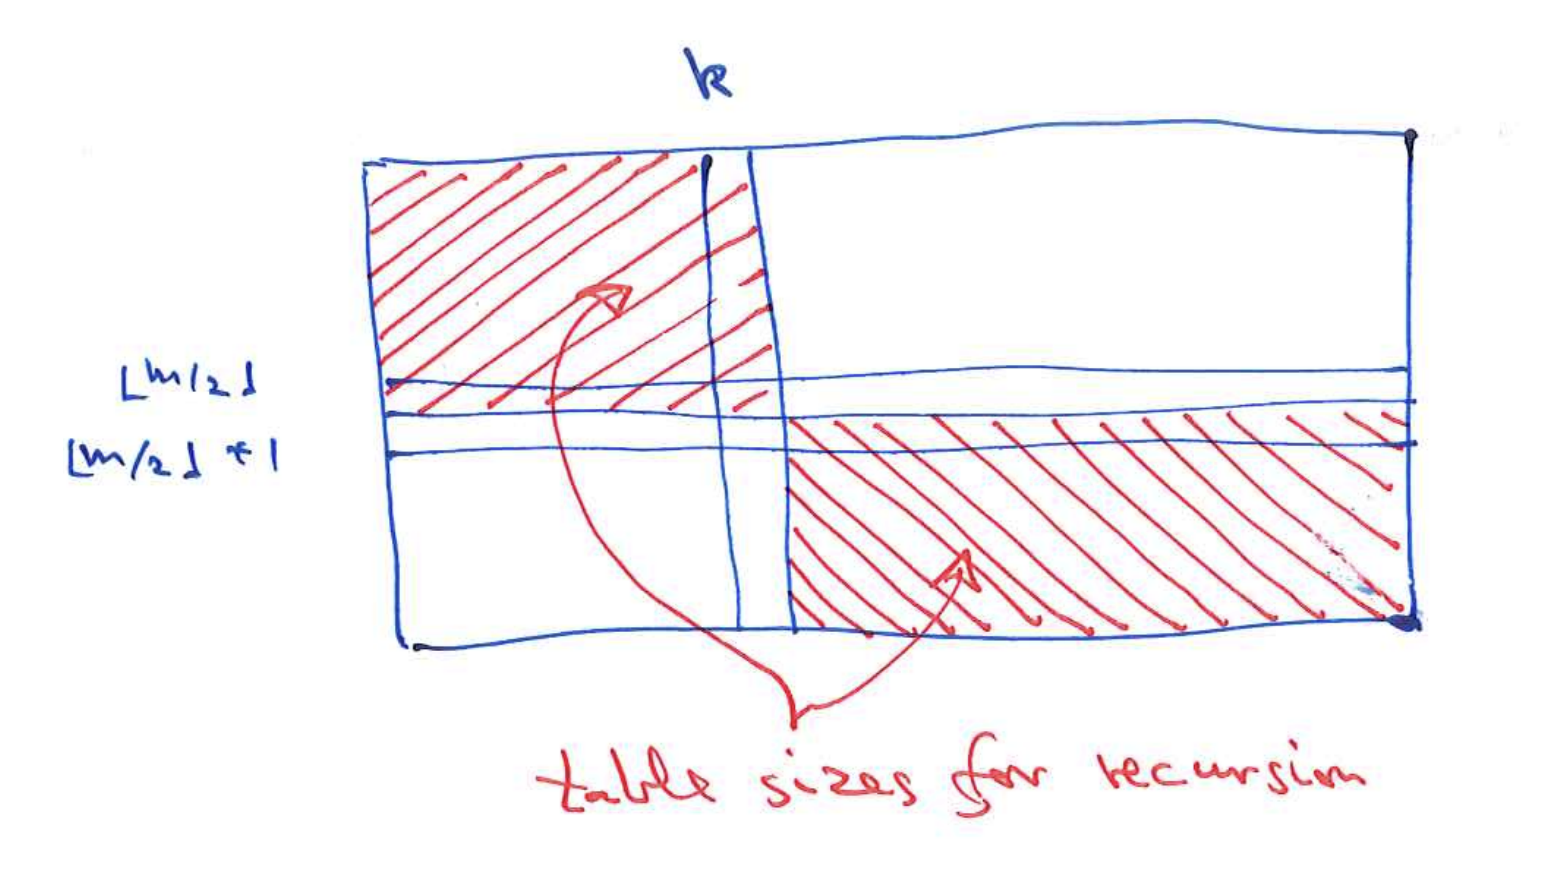 k
⌊m/2⌋
⌊m/2⌋ + 1
table sizes for recursion